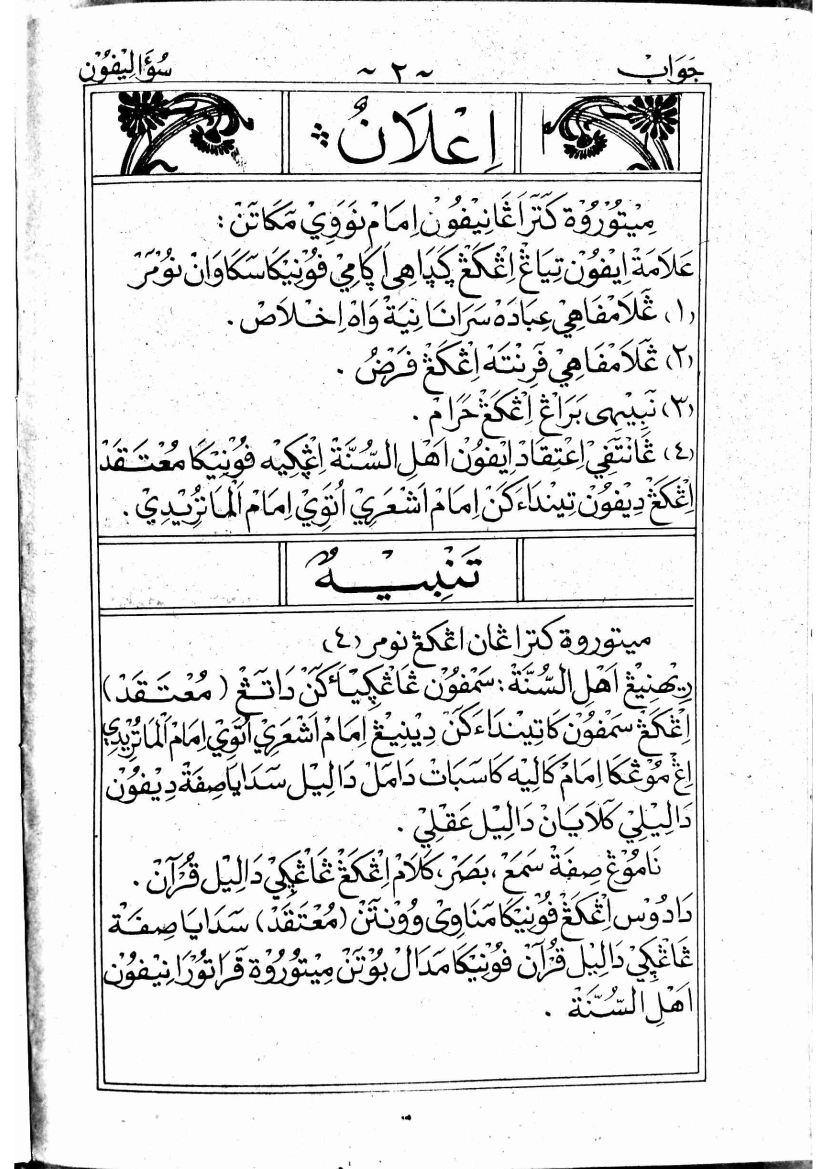 جَوَابْ ~ ٢ ~ سُؤَالِيْفُوْن
اِعْلَانٌ
مِيْتُوْرُوْة كَتَرَاڠَانِيْفُوْن اِمَامْ نَوَوِيْ مَّكَاتَنْ :
عَلَامَةْ اِيْفُوْن تِيَاڠْ اِڠْكَڠْ كَڽَاهِى اَݢَامِيْ فُوْنِيْكَا سَكَاوَانْ نُوْمَرْ
(١) ڠَلَامْفَاهِيْ عِبَادَهْ سَرَانَا نِيَةْ وَاهْ اِخْلَاصْ .
(٢) ڠَلَامْفَاهِيْ فَرِنْتَهْ اِڠْكَڠْ فَرْضُ .
(٣) نَبِيْهِى بَرَاڠْ اِڠْكَڠْ حَرَامْ .
(٤) ڠَانْتَّفِيْ اِعْتِقَادْ اِيْفُوْن اَهْلِ السُّنَّةْ اِڠْڮِيْه فُوْنِيْكَا مُعْتَقَدْ
اِڠْكَڠْ دِيْفُوْن تِيْنْدَاءَكَنْ اِمَامْ اَشْعَرِيْ اُتَوِيْ اِمَامْ اَلْمَاتُرِيْدِيْ .
تَنْبِيْهٌ
ميتوروة كتراڠان اڠكڠ نومر (٤)
رِيْهْنِيْڠْ اَهْلِ السُّنَّةْ : سَمْفُوْن ڠَاڠْڮِيْيَاَكَنْ دَاتَڠْ (مُعْتَقَدْ)
اِڠْكَڠْ سَمْفُوْن كَاتِيْنْدَاءَكَنْ دِيْنِيْڠْ اِمَامْ اَشْعَرِيْ اُتَوِيْ اِمَامْ اَلْمَاتُرِيْدِيْ
اِڠْ مُوْڠْكَا اِمَامْ كَالِيْه كَاسَبَاتْ دَامَلْ دَالِيْل سَدَايَا صِفَةْ دِيْفُوْن
دَالِيْلِيْ كَلَايَانْ دَالِيْل عَقْلِيْ .
نَامُوْڠْ صِفَةْ سَمَعْ ، بَصَرْ ، كَلَامْ اِڠْكَڠْ ڠَاڠْڮِيْ دَالِيْل قُرْآنْ .
دَادُوْس اِڠْكَڠْ فُوْنِيْكَا مَنَاوِى وُوْنْتَنْ (مُعْتَقَدْ) سَدَايَا صِفَةْ
ڠَاڠْڮِيْ دَالِيْل قُرْآنْ فُوْنِيْكَا مَدَالْ بُوْتَنْ مِيْتُوْرُوْة ڤَرَاتُوْرَانِيْفُوْن
اَهْلِ السُّنَّةْ .